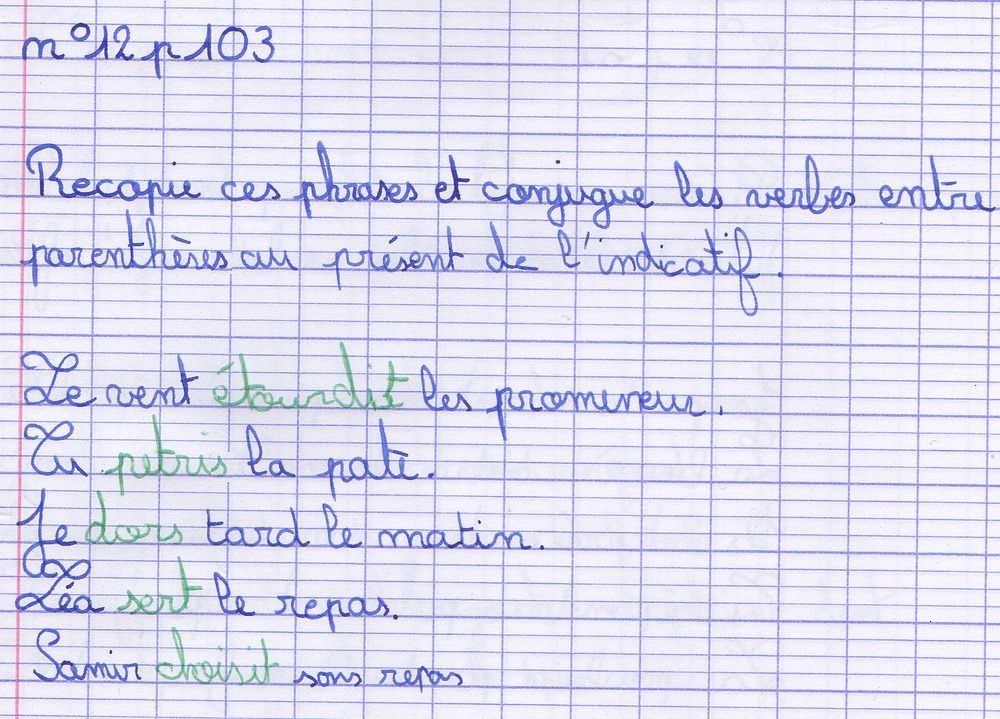 n°12 p 103
Recopie ces phrases et conjugue les verbes entre
parenthèses au présent de l'indicatif.
Le vent étourdit les promeneur.
Tu petris la pate.
Je dors tard le matin.
Léa sert le repas.
Samir choisit sons repas